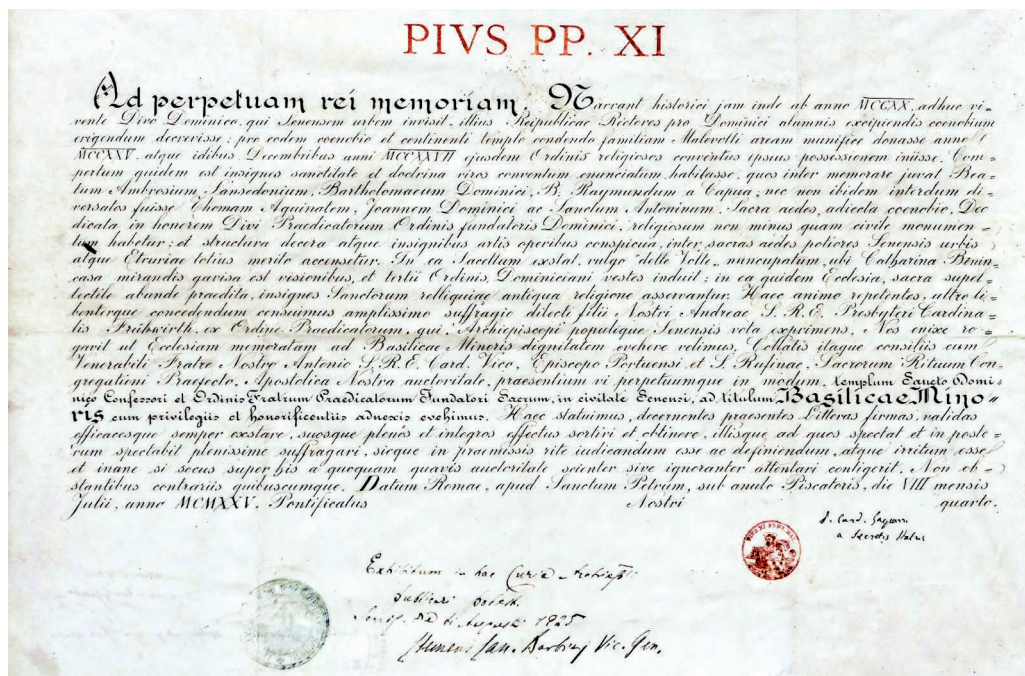 PIVS PP. XI
Ad perpetuam rei memoriam. Narrant historici jam inde ab anno MCCXX, adhuc vi=
vente Divo Dominico, qui Senensem urbem invisit, illius Reipublicae Rectores pro Dominici alumnis excipiendis coenobium
erigendum decrevisse; pro eodem coenobio et continenti templo condendo familiam Malevolti aream munifice donasse anno
MCCXXV, atque idibus Decembribus anni MCCXXVII ejusdem Ordinis religiosos conventus ipsius possessionem iniisse. Com=
pertum quidem est insignes sanctitate et doctrina viros conventum enunciatum habitasse, quos inter memorare juvat Bea=
tum Ambrosium Sansedonium, Bartholomaeum Dominici, B. Raymundum a Capua, nec non ibidem interdum di=
versatos fuisse Thomam Aquinatem, Joannem Dominici ac Sanctum Antoninum. Sacra aedes, adiecta coenobio, Deo
dicata in honorem Divi Praedicatorum Ordinis fundatoris Dominici, religiosum non minus quam civile monumen=
tum habetur; et structura decora atque insignibus artis operibus conspicua, inter sacras aedes potiores Senensis urbis
atque Etruriae totius merito accensetur. In ea Sacellum exstat, vulgo "delle Volte" nuncupatum, ubi Catharina Benin=
casa mirandis gavisa est visionibus, et tertii Ordinis Dominiciani vestes induit; in ea quidem Ecclesia, sacra supel=
lectile abunde praedita, insignes Sanctorum relliquiae antiqua religione asservantur. Haec animo repetentes, ultro li=
benterque concedendum censuimus amplissimo suffragio dilecti filii Nostri Andreae S. R. E. Presbyteri Cardina=
lis Frühwirth, ex Ordine Praedicatorum, qui, Archiepiscopi populique Senensis vota exprimens, Nos enixe ro=
gavit ut Ecclesiam memoratam ad Basilicae Minoris dignitatem evehere velimus. Collatis itaque consiliis cum
Venerabili Fratre Nostro Antonio S. R. E. Card. Vico, Episcopo Portuensi et S. Rufinae, Sacrorum Rituum Con=
gregationi Praefecto, Apostolica Nostra auctoritate, praesentium vi perpetuumque in modum, templum Sancto Domi=
nico Confessori et Ordinis Fratrum Praedicatorum Fundatori Sacrum, in civitate Senensi, ad titulum Basilicae Mino=
ris cum privilegiis et honorificentiis adnexis evehimus. Haec statuimus, decernentes praesentes Litteras firmas, validas
efficacesque semper exstare, suosque plenos et integros effectus sortiri et obtinere, illisque ad quos spectat et in poste=
rum spectabit plenissime suffragari, sicque in praemissis rite iudicandum esse ac definiendum, atque irritum esse
et inane si secus super his a quoquam quavis auctoritate scienter sive ignoranter attentari contigerit. Non ob=
stantibus contrariis quibuscumque. Datum Romae, apud Sanctum Petrum, sub anulo Piscatoris, die VIII mensis
Julii, anno MCMXXV, Pontificatus Nostri quarto.
P. Card. Gasparri
a Secretis Status
Exhibitum in hac Curia Archiepli
publicari potest.
Augusti 1925
Can. Vic. Gen.